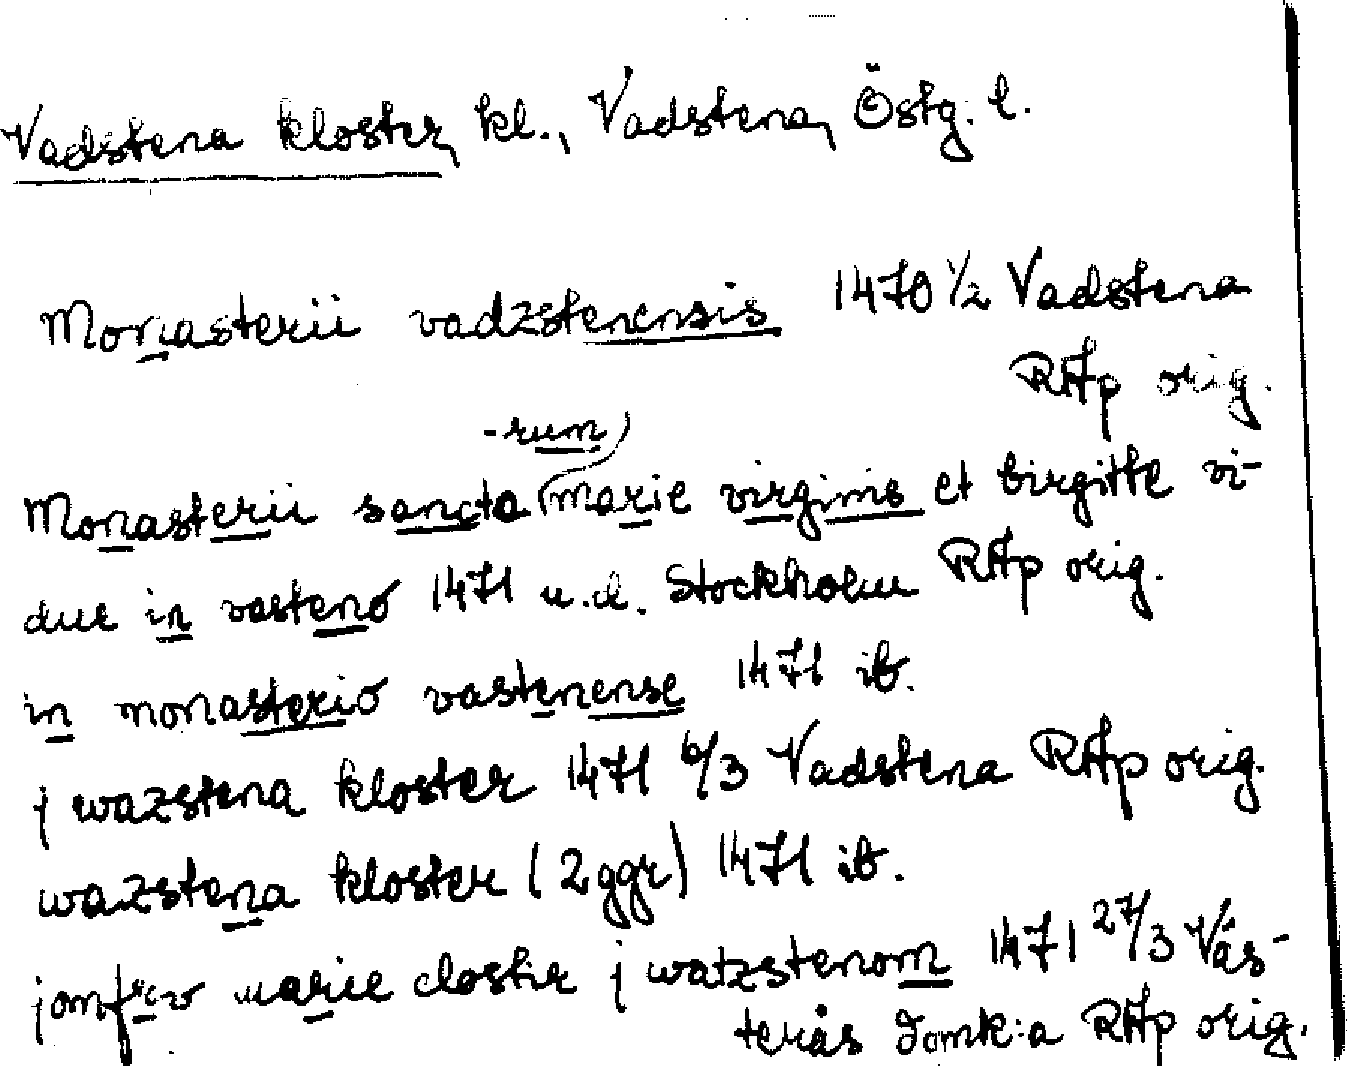 Vadstena kloster, kl., Vadstena, Östg. l.
Monasterii vadzstenensis 1470 1/2 Vadstena
RAp orig.
-rum
Monasterii sancta marie virginis et birgitte vi-
due in vasteno 1471 u.d. Stockholm RAp orig.
in monasterio vastenense 1471 ib.
j wazstena kloster 1471 6/3 Vadstena RAp orig.
wazstena kloster (2 ggr) 1471 ib.
jomfrw marie closter j watzstenom 1471 27/3 Väs-
terås domk:a RAp orig.